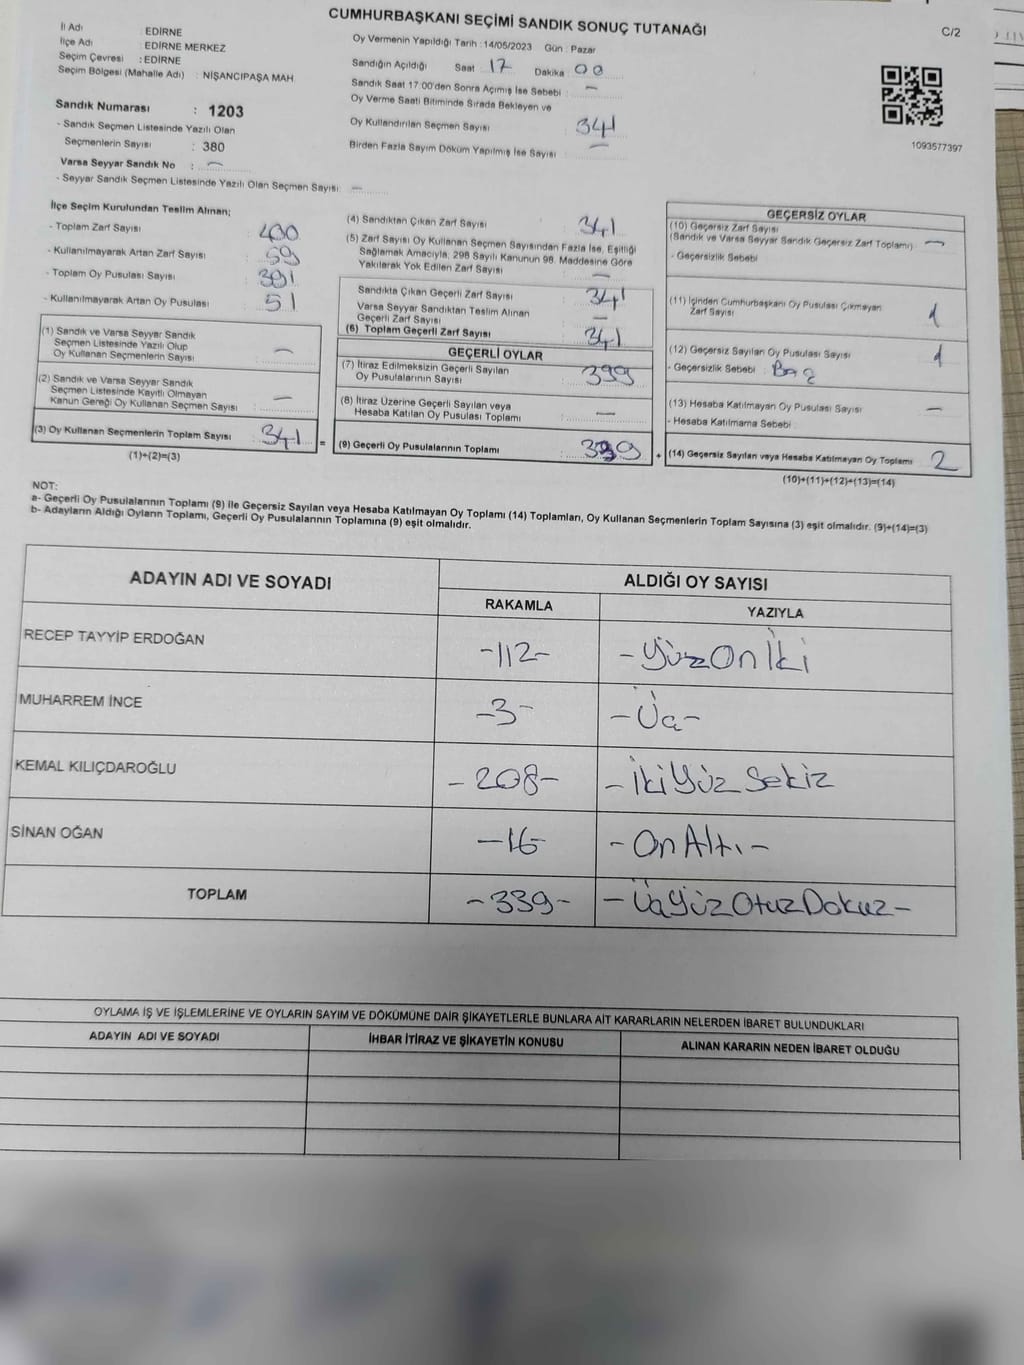 CUMHURBAŞKANI SEÇİMİ SANDIK SONUÇ TUTANAĞI
C/2
İl Adı : EDİRNE
İlçe Adı : EDİRNE MERKEZ
Seçim Çevresi : EDİRNE
Seçim Bölgesi (Mahalle Adı) : NİŞANCIPAŞA MAH.
Sandık Numarası : 1203
- Sandık Seçmen Listesinde Yazılı Olan
Seçmenlerin Sayısı : 380
Varsa Seyyar Sandık No : —
- Seyyar Sandık Seçmen Listesinde Yazılı Olan Seçmen Sayısı : —
Oy Vermenin Yapıldığı Tarih : 14/05/2023 Gün : Pazar
Sandığın Açıldığı Saat 17 Dakika 00
Sandık Saat 17:00'den Sonra Açılmış İse Sebebi : —
Oy Verme Saati Bitiminde Sırada Bekleyen ve
Oy Kullandırılan Seçmen Sayısı : 341
Birden Fazla Sayım Döküm Yapılmış İse Sayısı : —
1093577397
İlçe Seçim Kurulundan Teslim Alınan;
- Toplam Zarf Sayısı : 400
- Kullanılmayarak Artan Zarf Sayısı : 59
- Toplam Oy Pusulası Sayısı : 391
- Kullanılmayarak Artan Oy Pusulası : 51
(1) Sandık ve Varsa Seyyar Sandık
Seçmen Listesinde Yazılı Olup
Oy Kullanan Seçmenlerin Sayısı : —
(2) Sandık ve Varsa Seyyar Sandık
Seçmen Listesinde Kayıtlı Olmayan
Kanun Gereği Oy Kullanan Seçmen Sayısı : —
(3) Oy Kullanan Seçmenlerin Toplam Sayısı : 341 =
(1)+(2)=(3)
(4) Sandıktan Çıkan Zarf Sayısı : 341
(5) Zarf Sayısı Oy Kullanan Seçmen Sayısından Fazla İse, Eşitliği
Sağlamak Amacıyla, 298 Sayılı Kanunun 98. Maddesine Göre
Yakılarak Yok Edilen Zarf Sayısı : —
Sandıkta Çıkan Geçerli Zarf Sayısı : 341
Varsa Seyyar Sandıktan Teslim Alınan
Geçerli Zarf Sayısı : —
(6) Toplam Geçerli Zarf Sayısı : 341
GEÇERLİ OYLAR
(7) İtiraz Edilmeksizin Geçerli Sayılan
Oy Pusulalarının Sayısı : 339
(8) İtiraz Üzerine Geçerli Sayılan veya
Hesaba Katılan Oy Pusulası Toplamı : —
(9) Geçerli Oy Pusulalarının Toplamı : 339 +
GEÇERSİZ OYLAR
(10) Geçersiz Zarf Sayısı
(Sandık ve Varsa Seyyar Sandık Geçersiz Zarf Toplamı) —
- Geçersizlik Sebebi :
(11) İçinden Cumhurbaşkanı Oy Pusulası Çıkmayan
Zarf Sayısı : 1
(12) Geçersiz Sayılan Oy Pusulası Sayısı : 1
- Geçersizlik Sebebi : Boş
(13) Hesaba Katılmayan Oy Pusulası Sayısı : —
- Hesaba Katılmama Sebebi :
(14) Geçersiz Sayılan veya Hesaba Katılmayan Oy Toplamı : 2
(10)+(11)+(12)+(13)=(14)
NOT:
a- Geçerli Oy Pusulalarının Toplamı (9) ile Geçersiz Sayılan veya Hesaba Katılmayan Oy Toplamı (14) Toplamları, Oy Kullanan Seçmenlerin Toplam Sayısına (3) eşit olmalıdır. (9)+(14)=(3)
b- Adayların Aldığı Oyların Toplamı, Geçerli Oy Pusulalarının Toplamına (9) eşit olmalıdır.
ADAYIN ADI VE SOYADI ALDIĞI OY SAYISI
RAKAMLA YAZIYLA
RECEP TAYYİP ERDOĞAN -112- -Yüz On İki
MUHARREM İNCE -3- -Üç-
KEMAL KILIÇDAROĞLU -208- -İki Yüz Sekiz
SİNAN OĞAN -16- -On Altı-
TOPLAM -339- -Üç Yüz Otuz Dokuz-
OYLAMA İŞ VE İŞLEMLERİNE VE OYLARIN SAYIM VE DÖKÜMÜNE DAİR ŞİKAYETLERLE BUNLARA AİT KARARLARIN NELERDEN İBARET BULUNDUKLARI
ADAYIN ADI VE SOYADI İHBAR İTİRAZ VE ŞİKAYETİN KONUSU ALINAN KARARIN NEDEN İBARET OLDUĞU